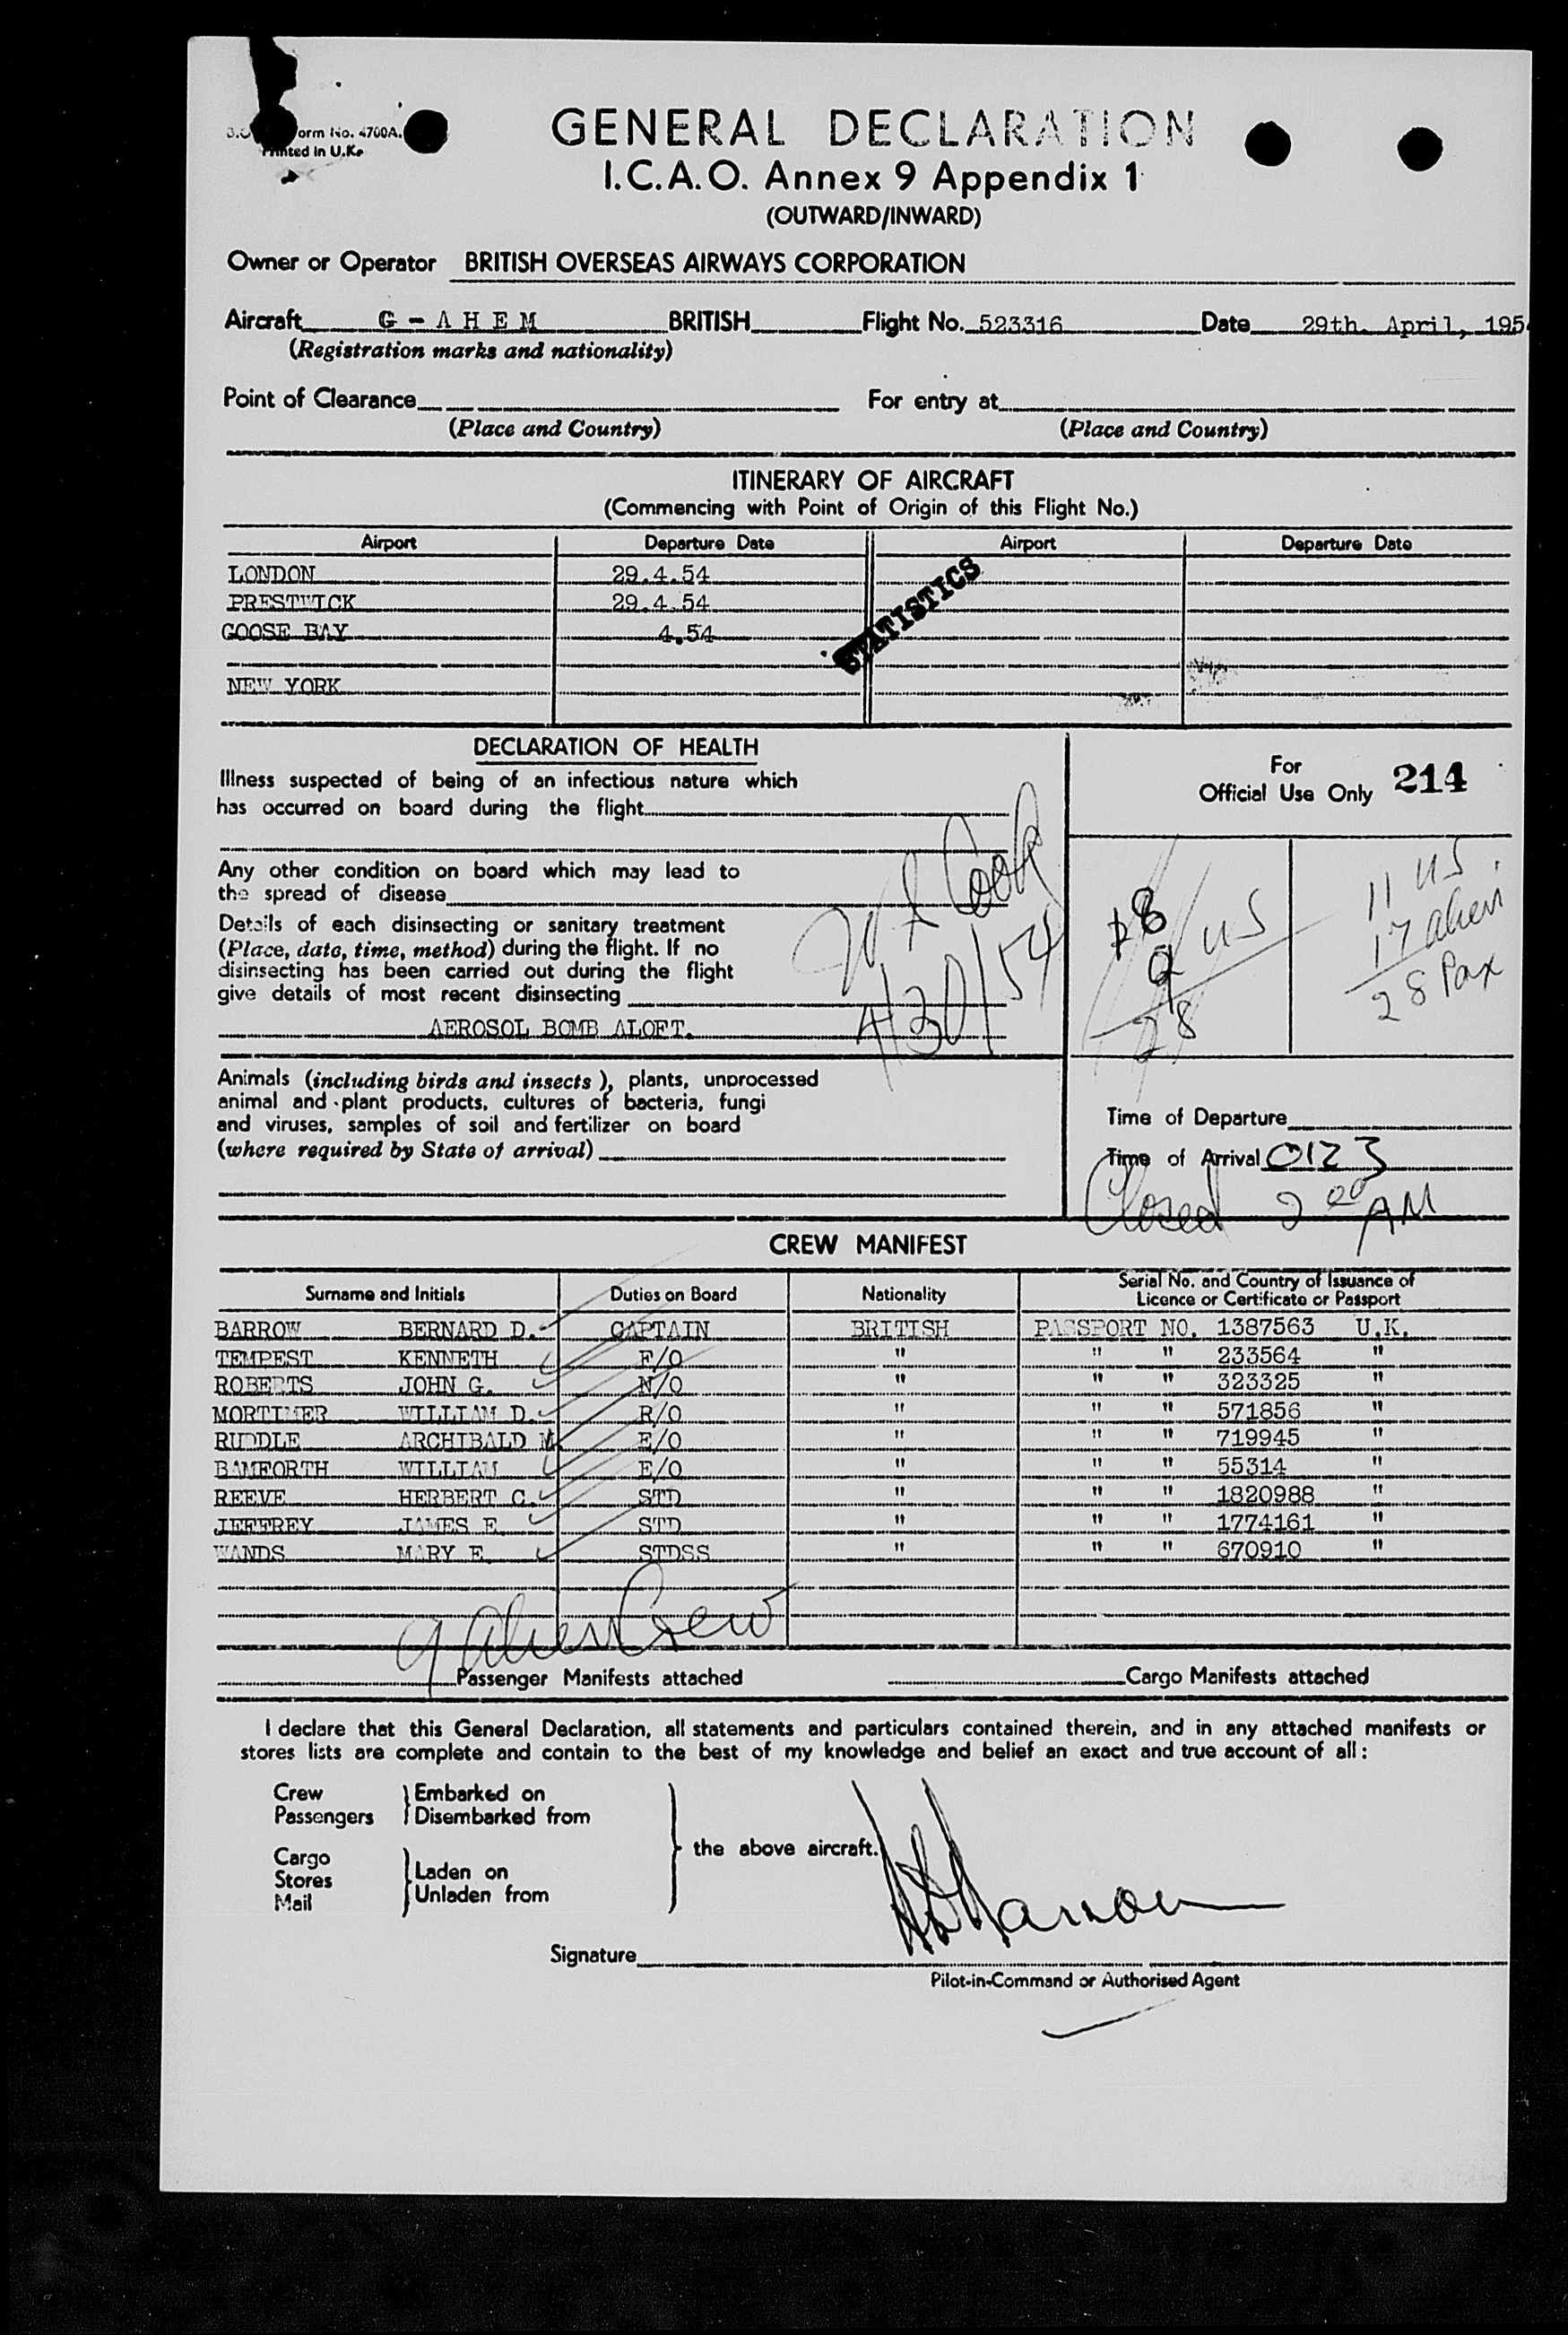 orm No. 4700A.
Printed in U.K.
GENERAL DECLARATION
I.C.A.O. Annex 9 Appendix 1
(OUTWARD/INWARD)
Owner or Operator BRITISH OVERSEAS AIRWAYS CORPORATION
Aircraft G - A H E M BRITISH Flight No. 523316 Date 29th. April, 195
(Registration marks and nationality)
Point of Clearance For entry at
(Place and Country) (Place and Country)
ITINERARY OF AIRCRAFT
(Commencing with Point of Origin of this Flight No.)
Airport Departure Date Airport Departure Date
LONDON 29.4.54
PRESTWICK 29.4.54
GOOSE BAY 4.54
STATISTICS
NEW YORK
DECLARATION OF HEALTH
Illness suspected of being of an infectious nature which
has occurred on board during the flight
For
Official Use Only 214
Any other condition on board which may lead to
the spread of disease
Details of each disinsecting or sanitary treatment
(Place, date, time, method) during the flight. If no
disinsecting has been carried out during the flight
give details of most recent disinsecting
AEROSOL BOMB ALOFT.
Cook
4/30/54
9 US
28
11 US
17 alien
28 Pax
Animals (including birds and insects), plants, unprocessed
animal and plant products, cultures of bacteria, fungi
and viruses, samples of soil and fertilizer on board
(where required by State of arrival)
Time of Departure
Time of Arrival 0123
Closed 2 00 AM
CREW MANIFEST
Surname and Initials Duties on Board Nationality Serial No. and Country of Issuance of
Licence or Certificate or Passport
BARROW BERNARD D. CAPTAIN BRITISH PASSPORT NO. 1387563 U.K.
TEMPEST KENNETH F/O " " " 233564 "
ROBERTS JOHN G. N/O " " " 323325 "
MORTIMER WILLIAM D. R/O " " " 571856 "
RUDDLE ARCHIBALD M E/O " " " 719945 "
BAMFORTH WILLIAM E/O " " " 55314 "
REEVE HERBERT C. STD " " " 1820988 "
JEFFREY JAMES E. STD " " " 1774161 "
WANDS MARY E. STDSS " " " 670910 "
9 Alien Crew
Passenger Manifests attached Cargo Manifests attached
I declare that this General Declaration, all statements and particulars contained therein, and in any attached manifests or
stores lists are complete and contain to the best of my knowledge and belief an exact and true account of all:
Crew Embarked on
Passengers Disembarked from
the above aircraft.
Cargo
Stores Laden on
Mail Unladen from
Signature
Pilot-in-Command or Authorised Agent